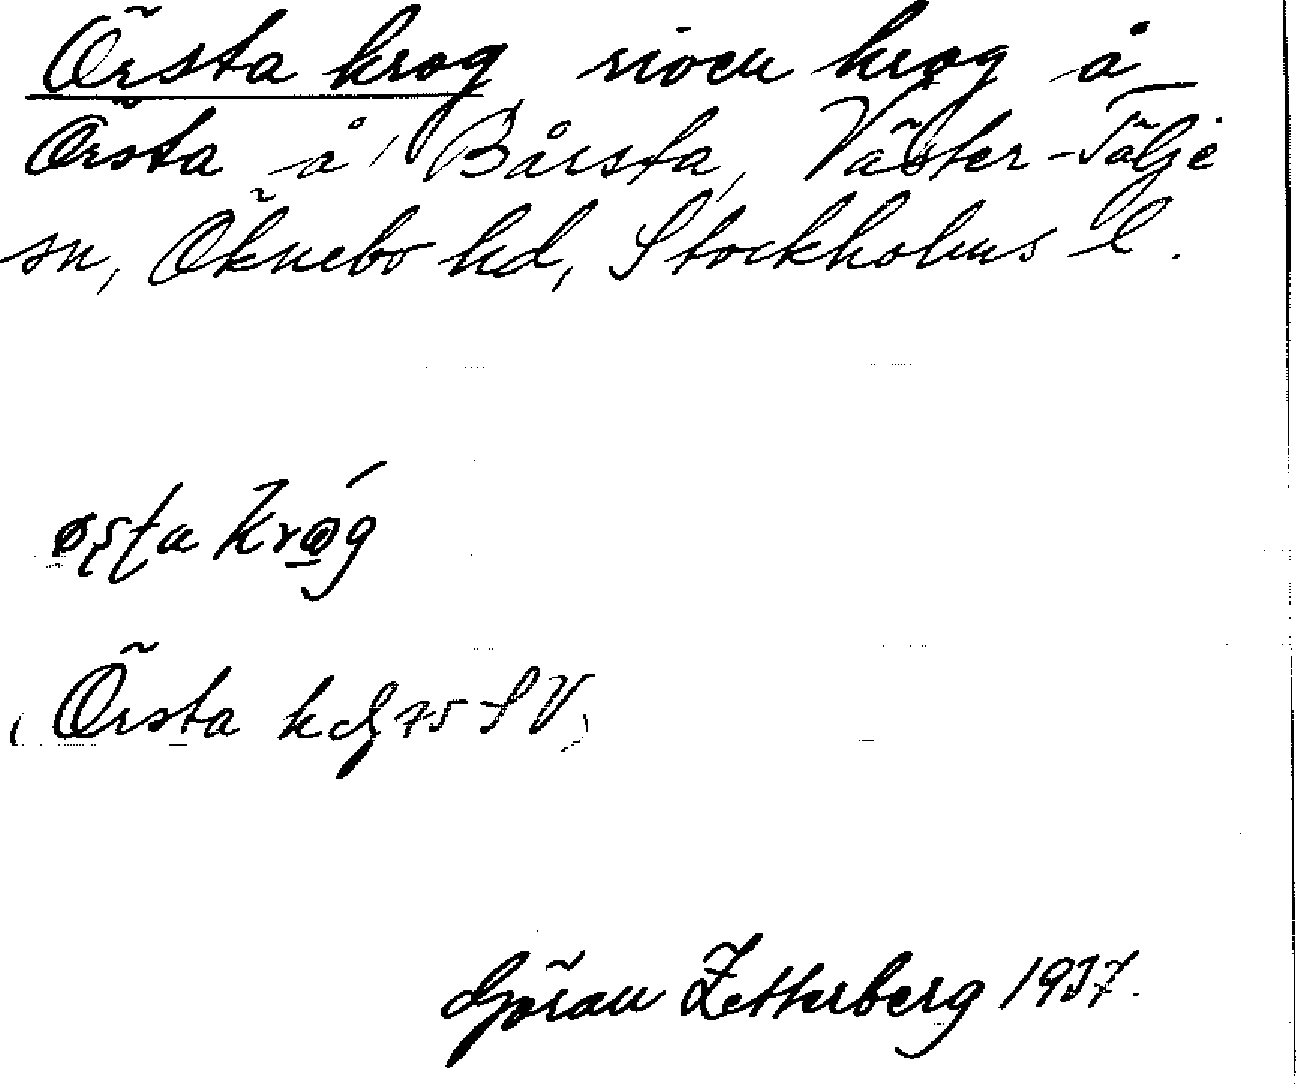 Örsta krog riven krog å
Örsta å Bårsta, Väster-Tälje
sn, Öknebo hd, Stockholms l.
Krog
(Örsta 75 SV)
Göran Zetterberg 1937.